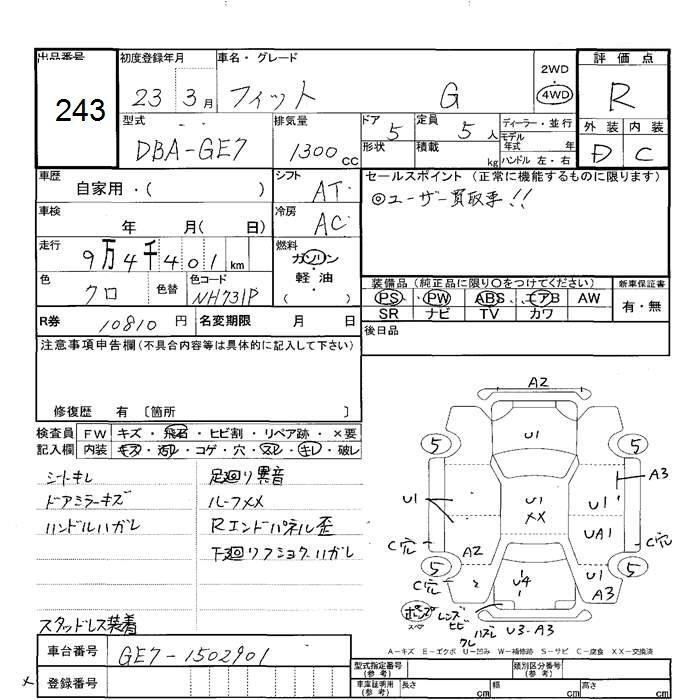 出品番号 初度登録年月 車名・グレード 2WD ・ 4WD 評価点
243 23 3月 フィット G R
型式 排気量 ドア 定員 ディーラー・並行 外装 内装
DBA-GE7 1300cc 5 5人 モデル年式 年 D C
形状 積載 kg ハンドル 左・右
車歴 シフト セールスポイント (正常に機能するものに限ります)
自家用・( ) AT ◎ユーザー買取車!!
車検 冷房
年 月( 日) AC
走行 燃料
9万4千401km ガソリン・軽油・( )
色 色替 色コード 装備品(純正品に限り〇をつけてください) 新車保証書
クロ NH731P PS ・ PW ・ ABS ・ エアB AW 有・無
SR ナビ TV カワ
R券 10810 円 名変期限 月 日 後日品
注意事項申告欄(不具合内容等は具体的に記入して下さい)
修復歴 有 〔箇所 〕
検査員記入欄 FW キズ・飛石・ヒビ割・リペア跡・×要
内装 キズ・汚れ・コゲ・穴・スレ・キレ・破レ
シートキレ 足廻り異音
ドアミラーキズ ルーフメメ
ハンドルハガレ Rエンドパネル歪
下廻りフショクハガレ
スタッドレス装着
A2
U1
5 5
A3
U1 U1 XX U1
UA1
C穴 C穴
A2
5 5
C穴 U4 U1
A3
テンプ スペア レンズヒビ ハズレ U3-A3
A-キズ E-エクボ U-凹み W-補修跡 S-サビ C-腐食 XX-交換済
車台番号 GE7-1502901
登録番号
型式指定番号(参考) 類別区分番号(参考)
車庫証明用(参考) 長さ cm 幅 cm 高さ cm